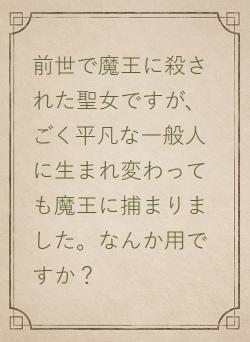 前世で魔王に殺さ
れた聖女ですが、
ごく平凡な一般人
に生まれ変わって
も魔王に捕まりま
した。なんか用で
すか？